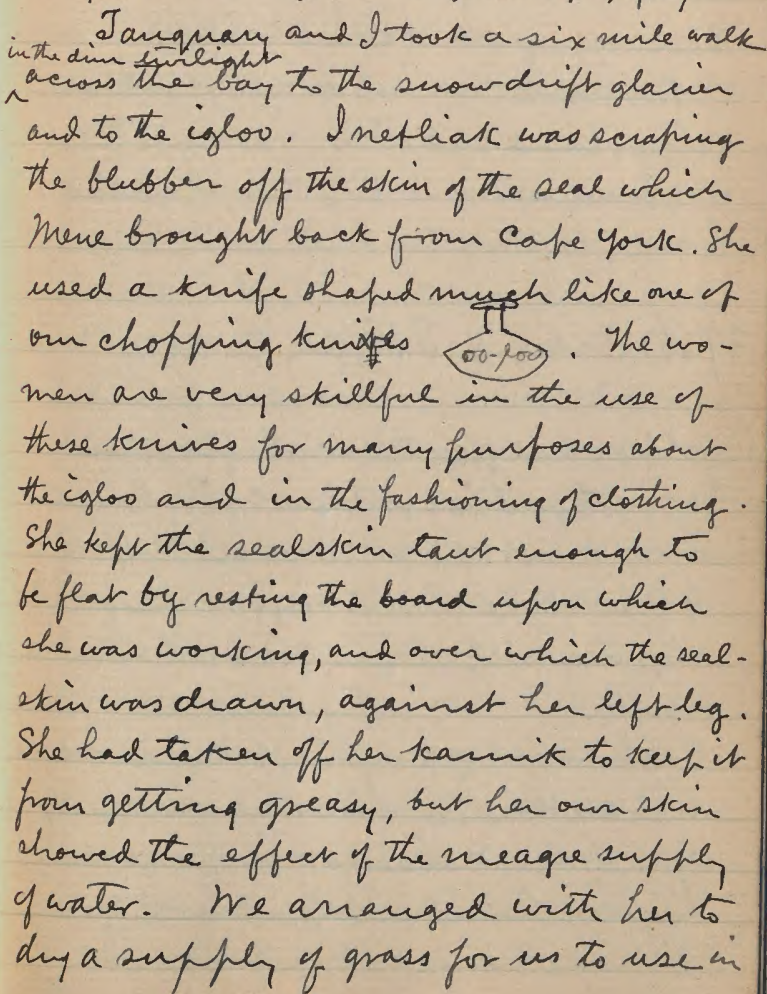 Tanquary and I took a six mile walk
in the dim twilight
across the bay to the snowdrift glacier
and to the igloo. Inetliak was scraping
the blubber off the skin of the seal which
Mene brought back from Cape York. She
used a knife shaped much like one of
our chopping knifes oo-loo. The wo-
men are very skillful in the use of
these knives for many purposes about
the igloo and in the fashioning of clothing.
She kept the sealskin taut enough to
be flat by resting the board upon which
she was working, and over which the seal-
skin was drawn, against her left leg.
She had taken off her kamik to keep it
from getting greasy, but her own skin
showed the effect of the meagre supply
of water. We arranged with her to
dry a supply of grass for us to use in